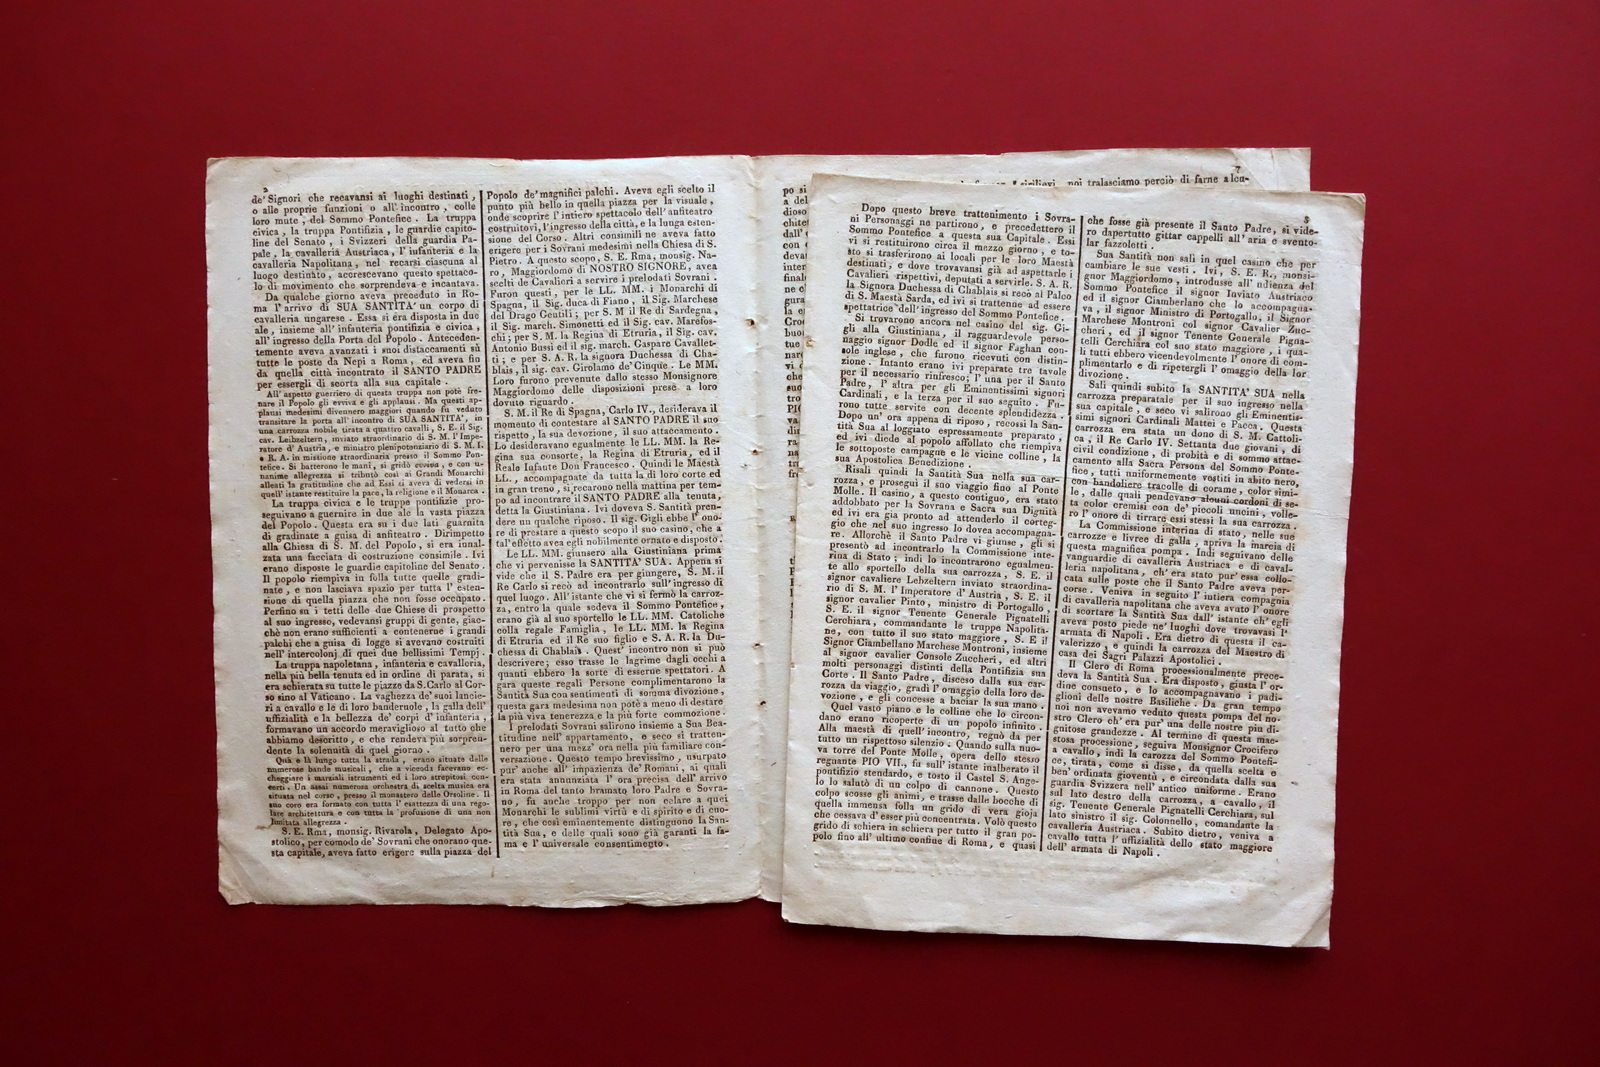 2
de' Signori che recavansi ai luoghi destinati,
o alle proprie funzioni o all' incontro, colle
loro mute, del Sommo Pontefice. La truppa
civica, la truppa Pontifizia, le guardie capito-
line del Senato, i Svizzeri della guardia Pa-
pale, la cavalleria Austriaca, l' infanteria e la
cavalleria Napolitana, nel recarsi ciascuna al
luogo destinato, accrescevano questo spettaco-
lo di movimento che sorprendeva e incantava.
Da qualche giorno aveva preceduto in Ro-
ma l' arrivo di SUA SANTITA' un corpo di
cavalleria ungarese. Essa si era disposta in due
ale, insieme all' infanteria pontifizia e civica,
all' ingresso della Porta del Popolo. Anteceden-
temente aveva avanzati i suoi distaccamenti su
tutte le poste da Nepi a Roma, ed aveva fin
da quella città incontrato il SANTO PADRE
per essergli di scorta alla sua capitale.
All' aspetto guerriero di questa truppa non potè fre-
nare il Popolo gli evviva e gli applausi. Ma questi ap-
plausi medesimi divennero maggiori quando fu veduto
transitare le porta all' incontro di SUA SANTITA', in
una carrozza nobile tirata a quattro cavalli, S. E. il Sig.
cav. Lebzeltern, inviato straordinario di S. M. l' Impe-
ratore d' Austria, e ministro plenipotenziario di S. M. I.
e R. A. in missione straordinaria presso il Sommo Pon-
tefice. Si batterono le mani, si gridò evviva, e con u-
nanime allegrezza si tributò così ai Grandi Monarchi
allesti la gratitudine che ad Essi ci aveva di vedersi in
quell' istante restituire la pace, la religione e il Monarca.
La truppa civica e le truppe pontifizie pro-
seguivano a guernire in due ale la vasta piazza
del Popolo. Questa era su i due lati guarnita
di gradinate a guisa di anfiteatro. Dirimpetto
alla Chiesa di S. M. del Popolo, si era inual-
zata una facciata di costruzione consimile. Ivi
erano disposte le guardie capitoline del Senato.
Il popolo riempiva in folla tutte quelle gradi-
nate, e non lasciava spazio per tutta l' esten-
sione di quella piazza che non fosse occupato.
Perfino su i tetti delle due Chiese di prospetto
al suo ingresso, vedevansi gruppi di gente, giac-
chè non erano sufficienti a contenerne i grandi
palchi che a guisa di logge si avevano costruiti
nell' intercolonj di quei due bellissimi Tempj.
La truppa napoletana, infanteria e cavalleria,
nella più bella tenuta ed in ordine di parata, si
era schierata su tutte le piazze da S. Carlo al Cor-
so sino al Vaticano. La vaghezza de' suoi lancie-
ri a cavallo e le di loro banderuole, la galla dell'
uffizialità e la bellezza de' corpi d' infanteria,
formavano un accordo meraviglioso al tutto che
abbiamo descritto, e che rendeva più sorpren-
dente la solennità di quel giorno.
Quà e là lungo tutta la strada, erano situate delle
numerose bande musicali, che a vicenda facevano ec-
cheggiare i marziali istrumenti ed i loro strepitosi con-
certi. Un assai numerosa orchestra di scelta musica era
situata nel corso, presso il monastero delle Orsoline. Il
suo coro era formato con tutta l' esattezza di una rego-
lare architettura e con tutta la profusione di una non
limitata allegrezza.
S. E. Rma, monsig. Rivarola, Delegato Apo-
stolico, per comodo de' Sovrani che onorano que-
sta capitale, aveva fatto erigere sulla piazza del
Popolo de' magnifici palchi. Aveva egli scelto il
punto più bello in quella piazza per la visuale,
onde scoprire l' intiero spettacolo dell' anfiteatro
costruitovi, l' ingresso della città, e la lunga esten-
sione del Corso. Altri consimili ne aveva fatto
erigere per i Sovrani medesimi nella Chiesa di S.
Pietro. A questo scopo, S. E. Rma, monsig. Na-
ro, Maggiordomo di NOSTRO SIGNORE, avea
scelti de' Cavalieri a servire i prelodati Sovrani.
Furon questi, per le LL. MM. i Monarchi di
Spagna, il Sig. duca di Fiano, il Sig. Marchese
del Drago Gentili; per S. M il Re di Sardegna,
il Sig. march. Simonetti ed il Sig. cav. Marefos-
chi; per S. M. la Regina di Etruria, il Sig. cav.
Antonio Bussi ed il sig. march. Gaspare Cavallet-
ti; e per S. A. R. la signora Duchessa di Cha-
blais, il sig. cav. Girolamo de' Cinque. Le MM.
Loro furono prevenute dallo stesso Monsignore
Maggiordomo delle disposizioni prese a loro
dovuto riguardo.
S. M. il Re di Spagna, Carlo IV., desiderava il
momento di contestare al SANTO PADRE il suo
rispetto, la sua devozione, il suo attaccamento.
Lo desideravano egualmente le LL. MM. la Re-
gina sua consorte, la Regina di Etruria, ed il
Reale Infante Don Francesco. Quindi le Maestà
LL., accompagnate da tutta la di loro corte ed
in gran treno, si recarono nella mattina per tem-
po ad incontrare il SANTO PADRE alla tenuta,
detta la Giustiniana. Ivi doveva S. Santità pren-
dere un qualche riposo. Il sig. Gigli ebbe l' ono-
re di prestare a questo scopo il suo casino, che a
tal' effetto avea egli nobilmente ornato e disposto.
Le LL. MM. giunsero alla Giustiniana prima
che vi pervenisse la SANTITA' SUA. Appena si
vide che il S. Padre era per giungere, S. M. il
Re Carlo si recò ad incontrarlo sull' ingresso di
quel luogo. All' istante che vi si fermò la carroz-
za, entro la quale sedeva il Sommo Pontefice,
erano già al suo sportello le LL. MM. Catoliche
colla regale Famiglia, le LL. MM. la Regina
di Etruria ed il Re suo figlio e S. A. R. la Du-
chessa di Chablais. Quest' incontro non si può
descrivere; esso trasse le lagrime dagli occhi a
quanti ebbero la sorte di esserne spettatori. A
gara queste regali Persone complimentarono la
Santità Sua con sentimenti di somma divozione,
questa gara medesima non potè a meno di destare
la più viva tenerezza e la più forte commozione.
I prelodati Sovrani salirono insieme a Sua Bea-
titudine nell' appartamento, e seco si tratten-
nero per una mezz' ora nella più familiare con-
versazione. Questo tempo brevissimo, usurpato
pur' anche all' impazienza de' Romani, ai quali
era stata annunziata l' ora precisa dell' arrivo
in Roma del tanto bramato loro Padre e Sovra-
no, fu anche troppo per non eclare a quei
Monarchi le sublimi virtù e di spirito e di cuo-
re, che così eminentemente distinguono la San-
tità Sua, e delle quali sono già garanti la fa-
ma e l' universale consentimento.
7
noi tralasciamo perciò di farne alcu-
3
Dopo questo breve trattenimento i Sovra-
ni Personaggi ne partirono, e precedettero il
Sommo Pontefice a questa sua Capitale. Essi
vi si restituirono circa il mezzo giorno, e to-
sto si trasferirono ai locali per le loro Maestà
destinati, e dove trovavansi già ad aspettarle i
Cavalieri rispettivi, deputati a servirle. S. A. R.
la Signora Duchessa di Chablais si recò al Palco
di S. Maestà Sarda, ed ivi si trattenne ad essere
spettatrice dell' ingresso del Sommo Pontefice.
Si trovarono ancora nel casino del sig. Gi-
gli alla Giustiniana, il ragguardevole perso-
naggio signor Dodle ed il signor Faghan con-
sole inglese, che furono ricevuti con distin-
zione. Intanto erano ivi preparate tre tavole
per il necessario rinfresco; l' una per il Santo
Padre, l' altra per gli Eminentissimi signori
Cardinali, e la terza per il suo seguito. Fu-
rono tutte servite con decente splendidezza.
Dopo un' ora appena di riposo, recossi la San-
tità Sua al loggiato espressamente preparato,
ed ivi diede al popolo affollato che riempiva
le sottoposte campagne e le vicine colline, la
sua Apostolica Benedizione.
Risalì quindi la Santità Sua nella sua car-
rozza, e proseguì il suo viaggio fino al Ponte
Molle. Il casino, a questo contiguo, era stato
addobbato per la Sovrana e Sacra sua Dignità
ed ivi era già pronto ad attenderlo il corteg-
gio che nel suo ingresso lo dovea accompagna-
re. Allorchè il Santo Padre vi giunse, gli si
presentò ad incontrarlo la Commissione inte-
rina di Stato; indi lo incontrarono egualmen-
te allo sportello della sua carrozza, S. E. il
signor cavaliere Lebzeltern inviato straordina-
rio di S. M. l' Imperatore d' Austria, S. E. il
signor cavalier Pinto, ministro di Portogallo,
S. E. il signor Tenente Generale Pignatelli
Cerchiara, commandante le truppe Napolita-
ne, con tutto il suo stato maggiore, S. E il
Signor Ciambellano Marchese Montroni, insieme
al signor cavalier Console Zuccheri, ed altri
molti personaggi distinti della Pontificia sua
Corte. Il Santo Padre, disceso dalla sua car-
rozza da viaggio, gradì l' omaggio della loro de-
vozione, e gli concesse a baciar la sua mano.
Quel vasto piano e le colline che lo circon-
dano erano ricoperte di un popolo infinito.
Alla maestà di quell' incontro, regnò da per
tutto un rispettoso silenzio. Quando sulla nuo-
va torre del Ponte Molle, opera dello stesso
regnante PIO VII., fu sull' istante inalberato il
pontifizio stendardo, e tosto il Castel S. Ange-
lo lo salutò di un colpo di cannone. Questo
colpo scosse gli animi, e trasse dalle bocche di
quella immensa folla un grido di vera gioja
che cessava d' esser più concentrata. Volò questo
grido di schiera in schiera per tutto il gran po-
polo fino all' ultimo confine di Roma, e quasi
che fosse già presente il Santo Padre, si vide-
ro dapertutto gittar cappelli all' aria e svento-
lar fazzoletti.
Sua Santità non salì in quel casino che per
cambiare le sue vesti. Ivi, S. E. R., monsi-
gnor Maggiordomo, introdusse all' udienza del
Sommo Pontefice il signor Inviato Austriaco
ed il signor Ciamberlano che lo accompagna-
va, il signor Ministro di Portogallo, il Signor
Marchese Montroni col signor Cavalier Zuc-
cheri, ed il signor Tenente Generale Pigna-
telli Cerchiara col suo stato maggiore, i qua-
li tutti ebbero vicendevolmente l' onore di com-
plimentarlo e di ripetergli l' omaggio della lor
divozione.
Salì quindi subito la SANTITA' SUA nella
carrozza preparatale per il suo ingresso nella
sua capitale, e seco vi salirono gli Eminentis-
simi signori Cardinali Mattei e Pacca. Questa
carrozza era stata un dono di S. M. Cattoli-
ca, il Re Carlo IV. Settanta due giovani, di
civil condizione, di probità e di sommo attac-
camento alla Sacra Persona del Sommo Ponte-
fice, tutti uniformemente vestiti in abito nero,
con bandoliere tracolle di corame, color simi-
le, dalle quali pendevano alcuni cordoni di se-
ta color cremisi con de' piccoli uncini, volle-
ro l' onore di tirrare essi stessi la sua carrozza.
La Commissione interina di stato, nelle sue
carrozze e livree di galla, apriva la marcia di
questa magnifica pompa. Indi seguivano delle
vanguardie di cavalleria Austriaca e di caval-
leria napolitana, ch' era stato pur' essa collo-
cata sulle poste che il Santo Padre aveva per-
corse. Veniva in seguito l' intiera compagnia
di cavalleria napolitana che aveva avuto l' onore
di scortare la Santità Sua dall' istante ch' egli
aveva posto piede ne' luoghi dove trovavasi l'
armata di Napoli. Era dietro di questa il ca-
valerizzo, e quindi la carrozza del Maestro di
casa dei Sagri Palazzi Apostolici.
Il Clero di Roma processionalmente prece-
deva la Santità Sua. Era disposto, giusta l' or-
dine consueto, e lo accompagnavano i padi-
glioni delle nostre Basiliche. Da gran tempo
noi non avevamo veduto questa pompa del no-
stro Clero ch' era pur' una delle nostre più di-
gnitose grandezze. Al termine di questa mae-
stosa processione, seguiva Monsignor Crocifero
a cavallo, indi la carrozza del Sommo Pontefi-
ce, tirata, come si disse, da quella scelta e
ben' ordinata gioventù, e circondata dalla sua
guardia Svizzera nell' antico uniforme. Erano
sul lato destro della carrozza, a cavallo, il
sig. Tenente Generale Pignatelli Cerchiara, sul
lato sinistro il sig. Colonnello, comandante la
cavalleria Austriaca. Subito dietro, veniva a
cavallo tutta l' uffizialità dello stato maggiore
dell' armata di Napoli.